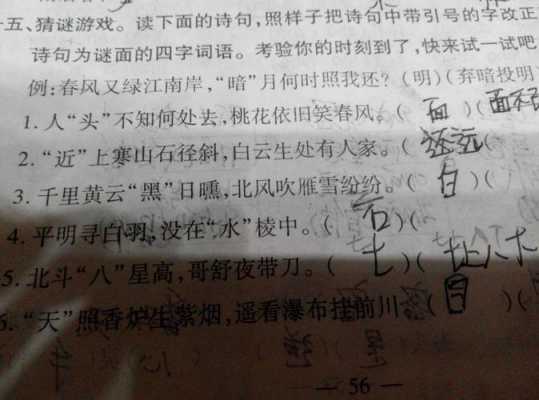 十五、猜谜游戏。读下面的诗句,照样子把诗句中带引号的字改正
诗句为谜面的四字词语。考验你的时刻到了,快来试一试吧
例:春风又绿江南岸,“暗”月何时照我还?(明)(弃暗投明
1.人“头”不知何处去,桃花依旧笑春风。(面)(面不
2.“近”上寒山石径斜,白云生处有人家。(远)(
3.千里黄云“黑”日曛,北风吹雁雪纷纷。(白)(
4.平明寻白羽,没在“水”棱中。(石)(
5.北斗“八”星高,哥舒夜带刀。(七)(七上八下
6.“天”照香炉生紫烟,遥看瀑布挂前川。(日)(
— 56 —